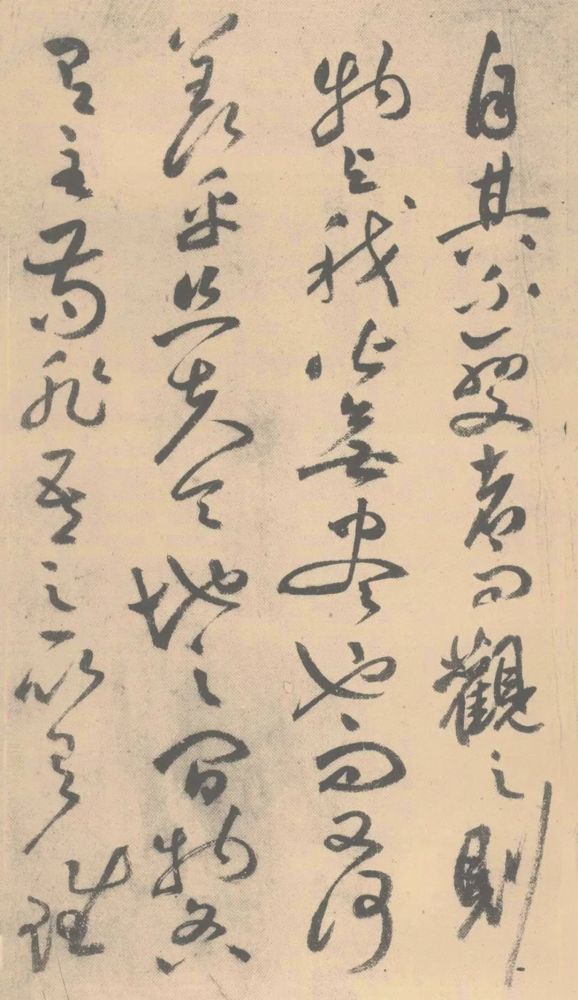 自其不變者而觀之則
物與我皆無盡也而又何
羨乎且夫天地之間物各
有主苟非吾之所有雖